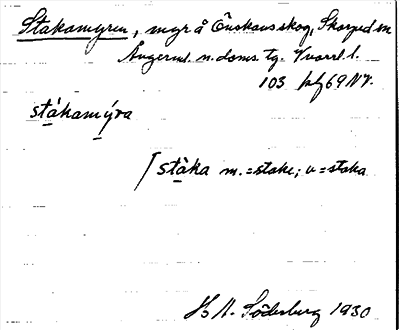 Stakamyren, myr å Önskans skog, Skorped sn
Ångerml. n. doms. tg. Tvärrl. 1.
103 plg 69 NV.
stákamýra
[ stàka m. = stake; v = staka
H. N. Söderberg 1930